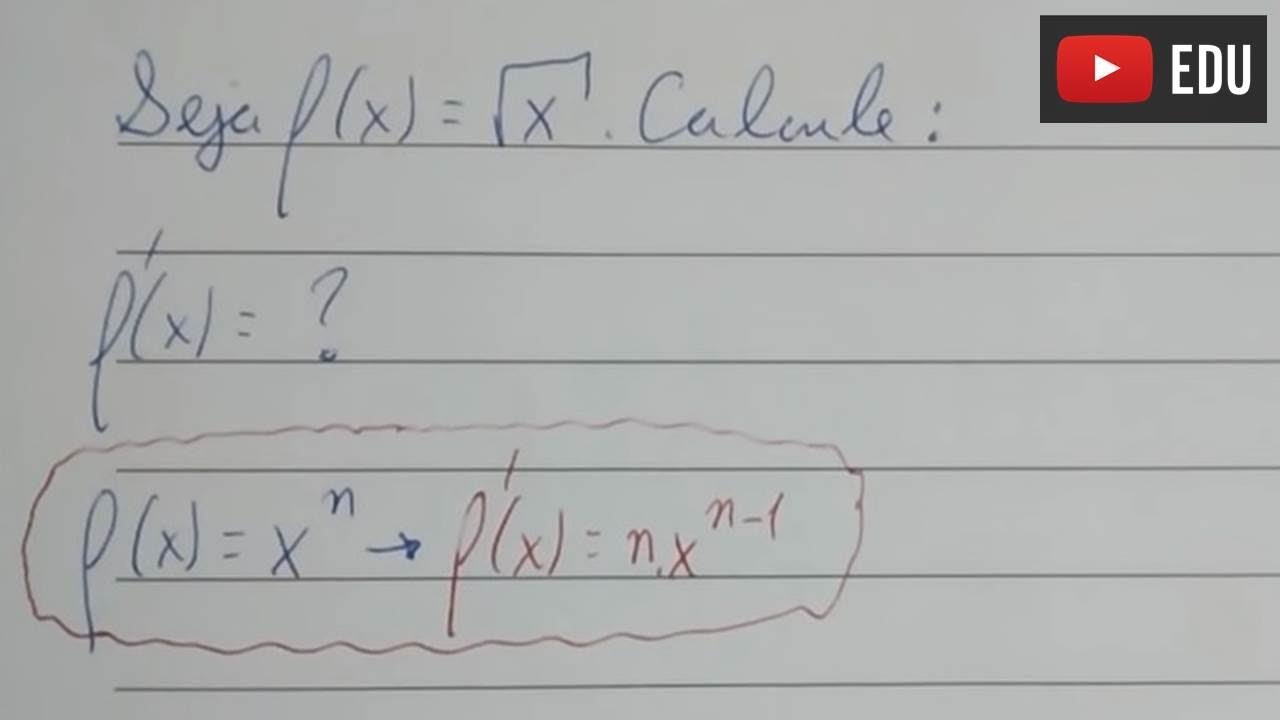 EDU
Seja f(x) = √x. Calcule:
f'(x) = ?
f(x) = xⁿ → f'(x) = n.xⁿ⁻¹